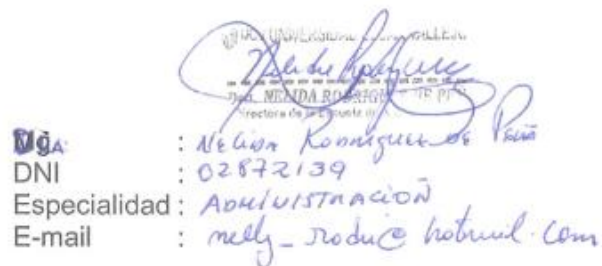 UNIVERSIDAD CÉSAR VALLEJO
Nelida Rodriguez
Dra. NELIDA RODRIGUEZ DE PEÑA
Directora de la Escuela de
DRA : NELIDA RODRIGUEZ DE PEÑA
DNI : 02872139
Especialidad : ADMINISTRACIÓN
E-mail : nelly_rodu@hotmail.com